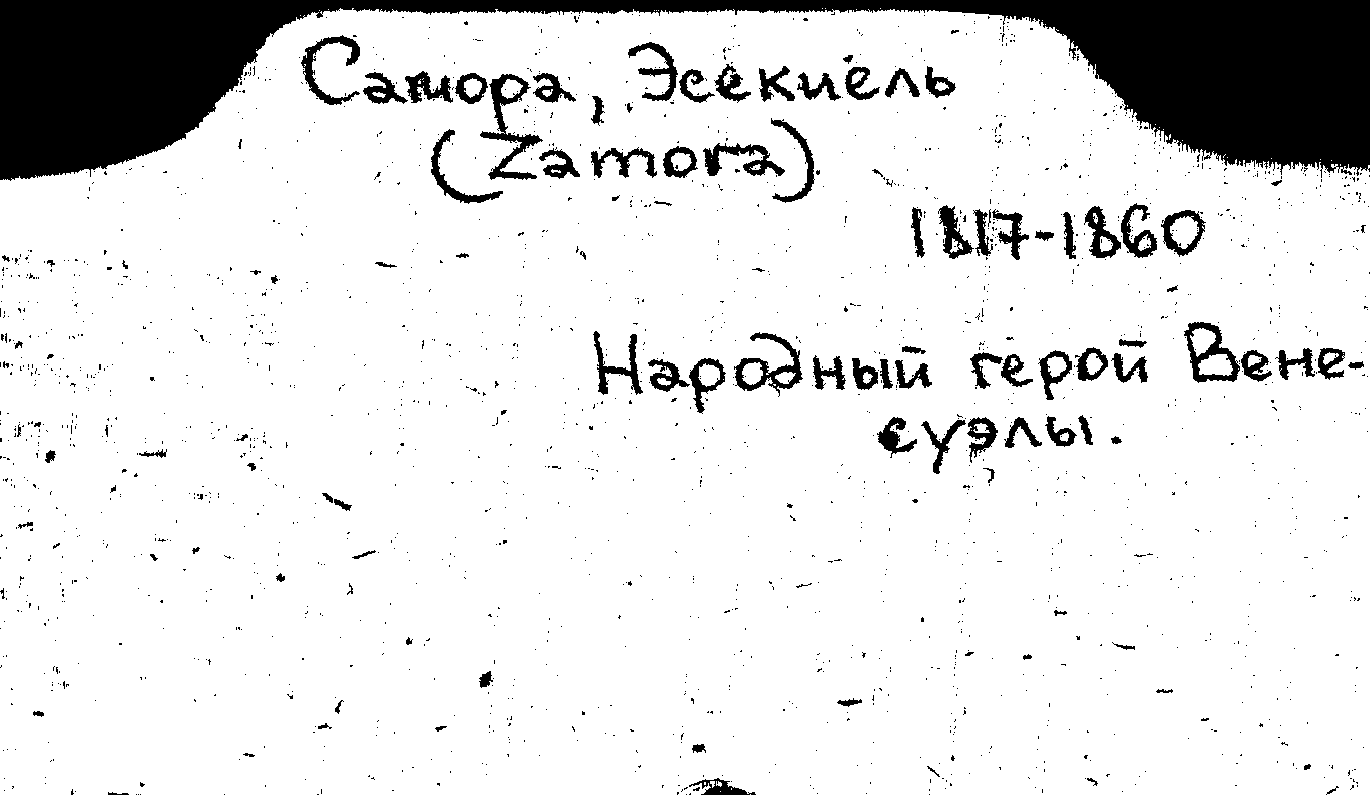 Самора, Эсекиель
(Zamora)
1817-1860
Народный герой Вене-
суэлы.